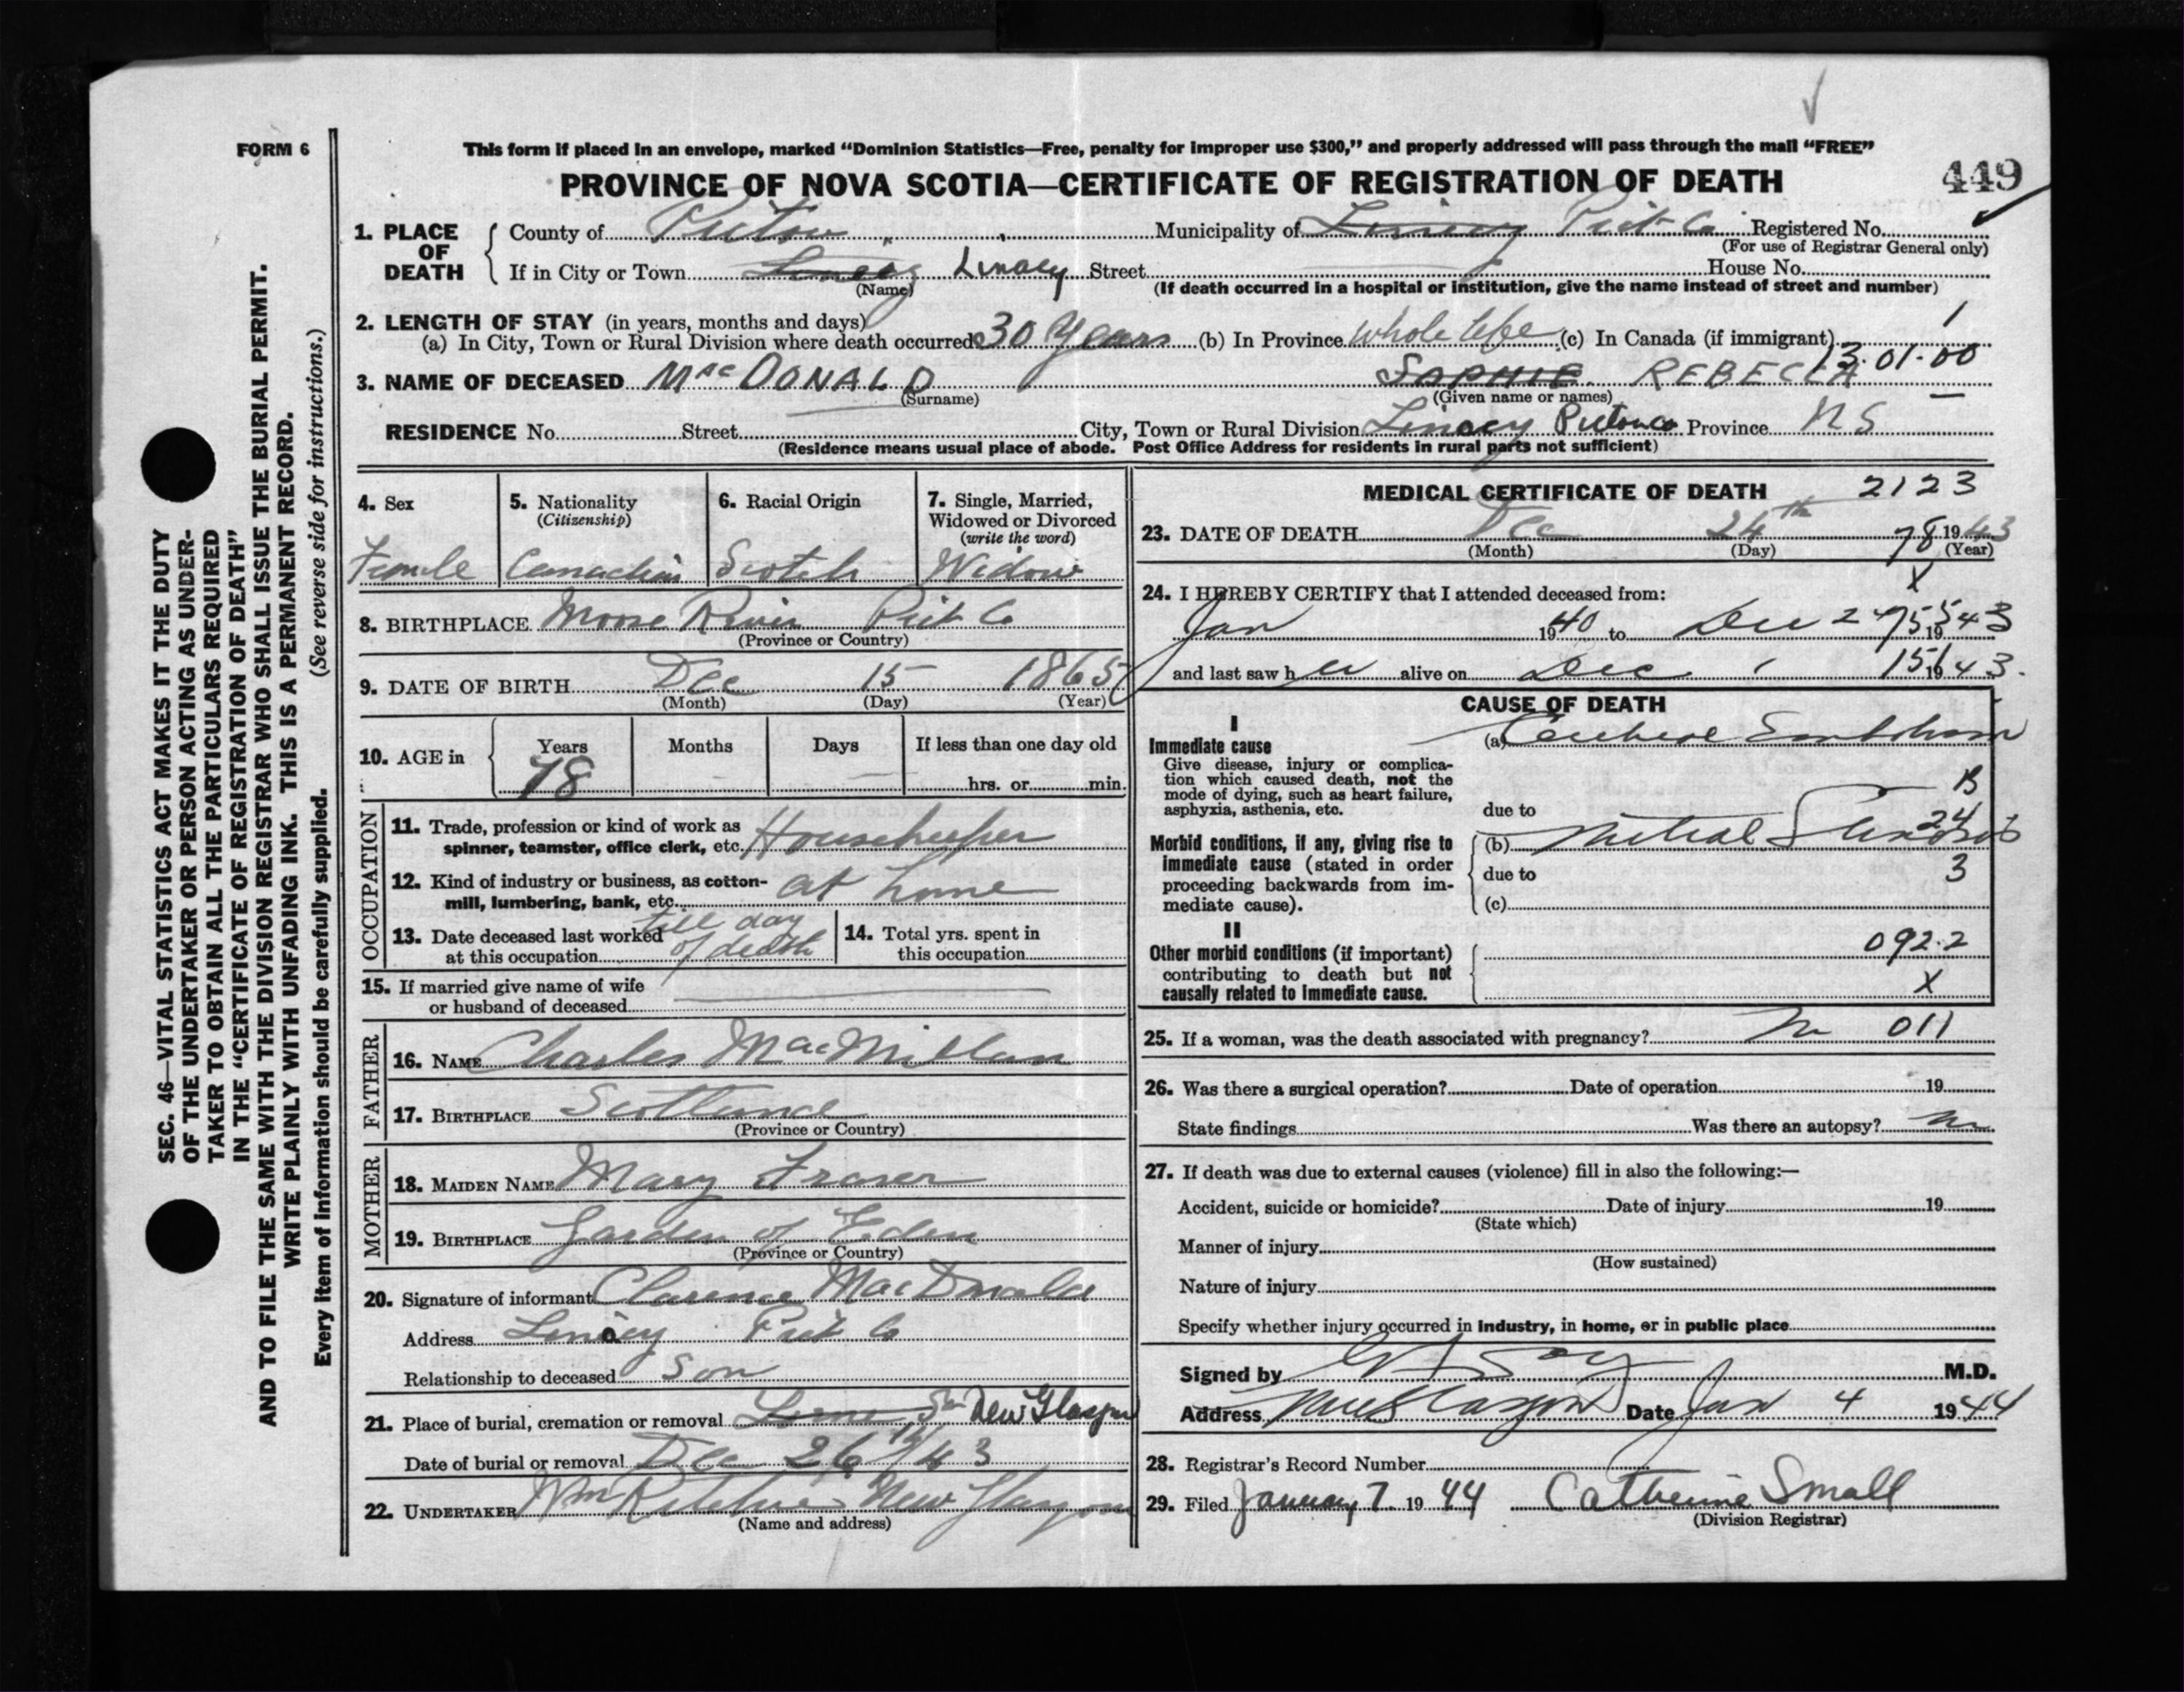 FORM 6
This form if placed in an envelope, marked “Dominion Statistics—Free, penalty for improper use $300,” and properly addressed will pass through the mail “FREE”
PROVINCE OF NOVA SCOTIA—CERTIFICATE OF REGISTRATION OF DEATH
449
1. PLACE OF DEATH
County of Pictou Municipality of Linacy Pict Co Registered No.
(For use of Registrar General only)
If in City or Town Linacy Linacy Street House No.
(Name) (If death occurred in a hospital or institution, give the name instead of street and number)
2. LENGTH OF STAY (in years, months and days)
(a) In City, Town or Rural Division where death occurred 30 Years (b) In Province Whole life (c) In Canada (if immigrant) 1
13.01.00
3. NAME OF DECEASED MacDONALD SOPHIE REBECCA
(Surname) (Given name or names)
RESIDENCE No. Street City, Town or Rural Division Linacy Pictou Co Province NS
(Residence means usual place of abode. Post Office Address for residents in rural parts not sufficient)
4. Sex
Female
5. Nationality
(Citizenship)
Canadian
6. Racial Origin
Scotch
7. Single, Married, Widowed or Divorced
(write the word)
Widow
8. BIRTHPLACE Moose River Pict Co
(Province or Country)
9. DATE OF BIRTH Dec 15 1865
(Month) (Day) (Year)
10. AGE in Years Months Days If less than one day old
78 hrs. or min.
OCCUPATION
11. Trade, profession or kind of work as
spinner, teamster, office clerk, etc. Housekeeper
12. Kind of industry or business, as cotton-
mill, lumbering, bank, etc. at home
13. Date deceased last worked till day
at this occupation of death
14. Total yrs. spent in
this occupation
15. If married give name of wife
or husband of deceased
FATHER
16. NAME Charles MacMillan
17. BIRTHPLACE Scotland
(Province or Country)
MOTHER
18. MAIDEN NAME Mary Fraser
19. BIRTHPLACE Garden of Eden
(Province or Country)
20. Signature of informant Clarence MacDonald
Address Linacy Pict Co
Relationship to deceased Son
21. Place of burial, cremation or removal Lorne New Glasgow
Date of burial or removal Dec 26th/43
22. UNDERTAKER Wm Ritchie New Glasgow
(Name and address)
MEDICAL CERTIFICATE OF DEATH 2123
23. DATE OF DEATH Dec 24th 78 1943
(Month) (Day) (Year)
X
24. I HEREBY CERTIFY that I attended deceased from:
Jan 1940 to Dec 24 1943
and last saw her alive on Dec 1943.
CAUSE OF DEATH
I
Immediate cause
Give disease, injury or complica-
tion which caused death, not the
mode of dying, such as heart failure,
asphyxia, asthenia, etc.
(a) Cerebral Embolism
B
due to
24
Morbid conditions, if any, giving rise to
immediate cause (stated in order
proceeding backwards from im-
mediate cause).
(b) Mitral Stenosis
due to 3
(c)
II
Other morbid conditions (if important)
contributing to death but not
causally related to immediate cause.
092.2
X
25. If a woman, was the death associated with pregnancy? No 011
26. Was there a surgical operation? Date of operation 19
State findings Was there an autopsy? No
27. If death was due to external causes (violence) fill in also the following:—
Accident, suicide or homicide? Date of injury 19
(State which)
Manner of injury
(How sustained)
Nature of injury
Specify whether injury occurred in industry, in home, or in public place
Signed by M.D.
Address New Glasgow Date Jan 4 1944
28. Registrar's Record Number
29. Filed January 7 1944 Catherine Small
(Division Registrar)
SEC. 46—VITAL STATISTICS ACT MAKES IT THE DUTY
OF THE UNDERTAKER OR PERSON ACTING AS UNDER-
TAKER TO OBTAIN ALL THE PARTICULARS REQUIRED
IN THE “CERTIFICATE OF REGISTRATION OF DEATH”
AND TO FILE THE SAME WITH THE DIVISION REGISTRAR WHO SHALL ISSUE THE BURIAL PERMIT.
WRITE PLAINLY WITH UNFADING INK. THIS IS A PERMANENT RECORD.
Every item of information should be carefully supplied. (See reverse side for instructions.)